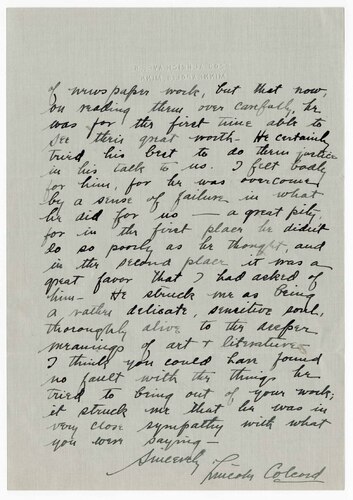 of newspaper work, but that now,
on reading them over carefully, he
was for the first time able to
see their great worth - He certainly
tried his best to do them justice
in his talk to us. I felt badly
for him, for he was overcome
by a sense of failure in what
he did for us — a great pity,
for in the first place he didn't
do so poorly as he thought, and
in the second place it was a
great favor that I had asked of
him - He struck me as being
a rather delicate, sensitive soul,
thoroughly alive to the deeper
meanings of art + literature
I think you could have found
no fault with the things he
tried to bring out of your work;
it struck me that he was in
very close sympathy with what
you were saying -
Sincerely
Lincoln Colcord